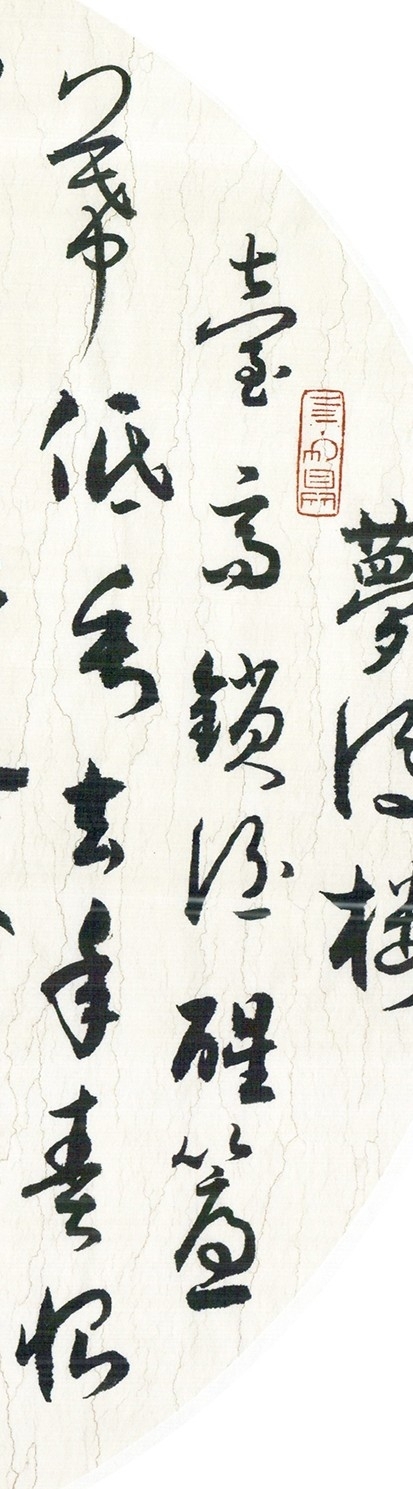 夢後樓
臺高鎖酒醒簾
幕低垂去年春恨